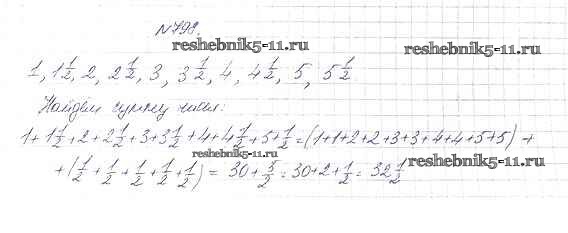 № 798.
reshebnik5-11.ru reshebnik5-11.ru
1, 1 1/2, 2, 2 1/2, 3, 3 1/2, 4, 4 1/2, 5, 5 1/2
Найдём сумму чисел:
1+1 1/2+2+2 1/2+3+3 1/2+4+4 1/2+5+1/2=(1+1+2+2+3+3+4+4+5+5)+
reshebnik5-11.ru reshebnik5-11.ru
+(1/2+1/2+1/2+1/2+1/2)=30+5/2=30+2+1/2=32 1/2